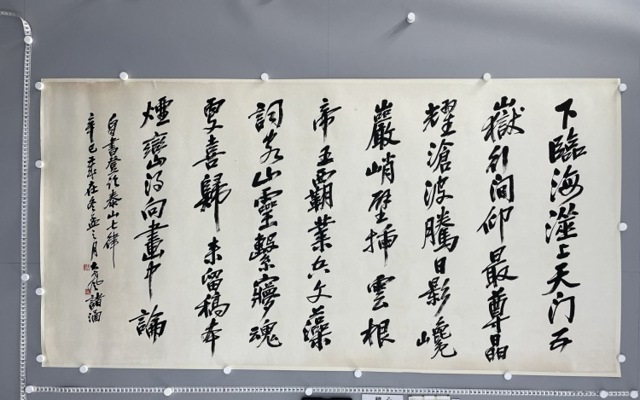 下臨海澨上天门五
嶽列間仰最尊晶
耀滄波騰日影巉
巖峭壁插雲根
帝王霸業文藻
詞客山靈繫夢魂
更喜歸來留稿本
煙巒得向畫中論
自書登泰山七律
辛巳在冬孟之月大風諸涵